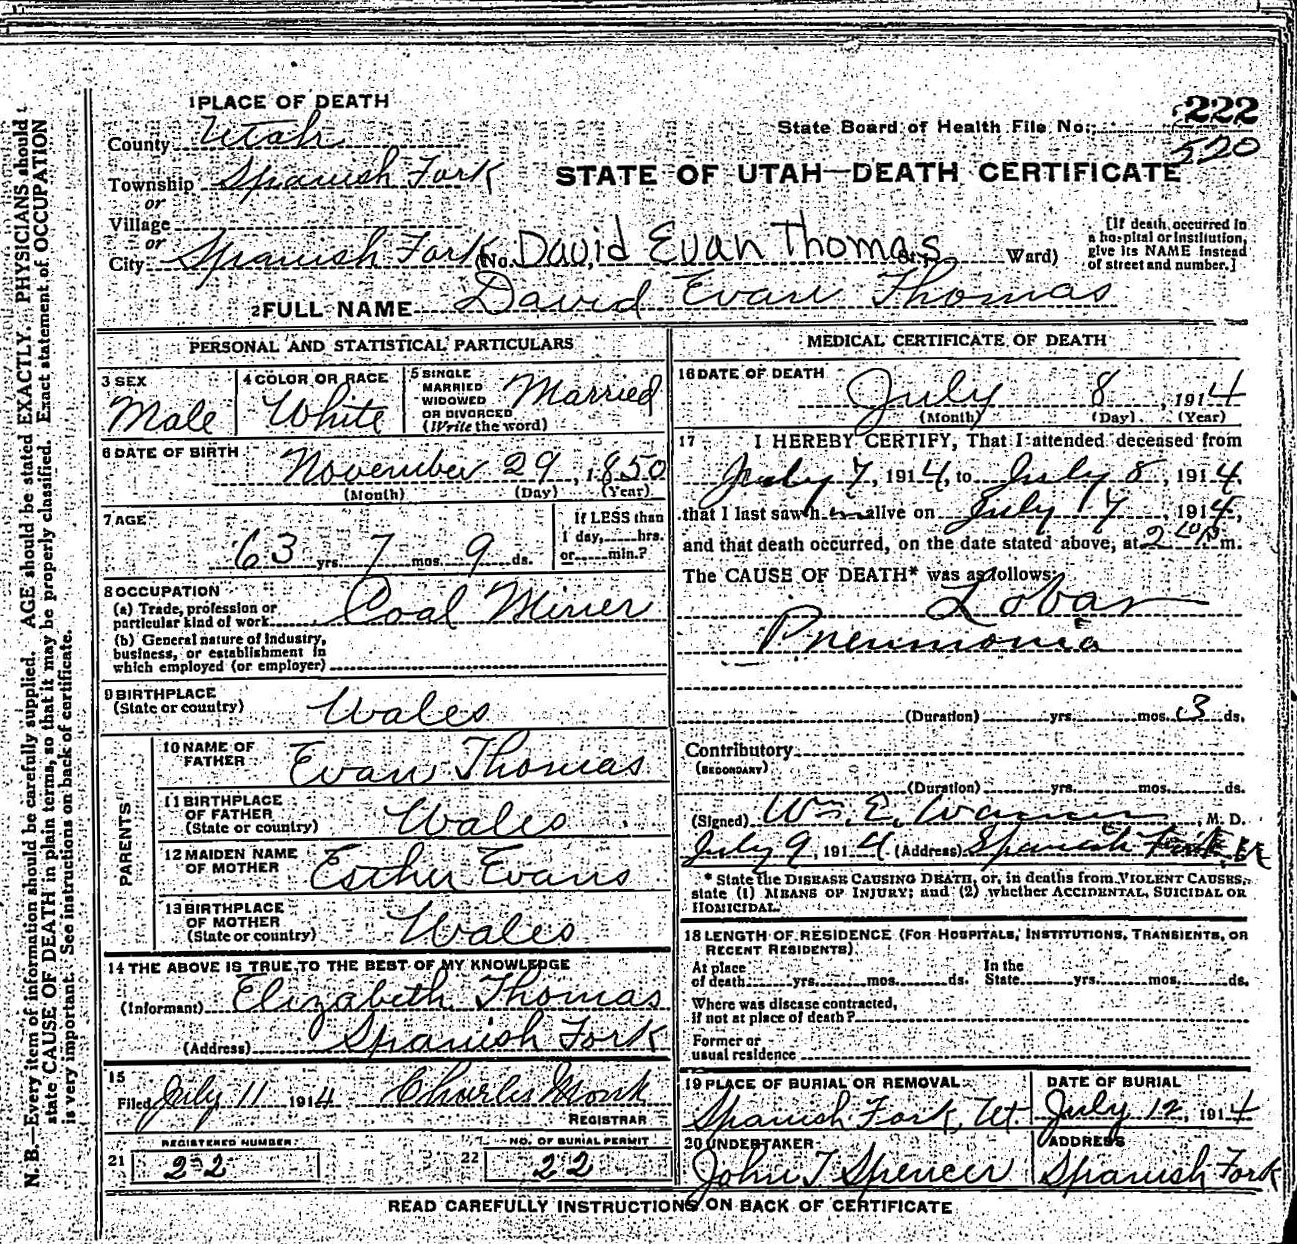 1 PLACE OF DEATH
222
State Board of Health File No.
520
County Utah
Township Spanish Fork
or
STATE OF UTAH—DEATH CERTIFICATE
Village
or
City Spanish Fork (No. David Evan Thomas St., Ward)
[If death occurred in a hospital or institution, give its NAME instead of street and number.]
2 FULL NAME David Evan Thomas
PERSONAL AND STATISTICAL PARTICULARS
3 SEX
Male
4 COLOR OR RACE
White
5 SINGLE MARRIED WIDOWED OR DIVORCED (Write the word)
Married
6 DATE OF BIRTH
November 29, 1850
(Month) (Day) (Year)
7 AGE
63 yrs. 7 mos. 9 ds.
If LESS than
1 day, hrs.
or min.?
8 OCCUPATION
(a) Trade, profession or
particular kind of work Coal Miner
(b) General nature of industry,
business, or establishment in
which employed (or employer)
9 BIRTHPLACE
(State or country) Wales
PARENTS
10 NAME OF
FATHER Evan Thomas
11 BIRTHPLACE
OF FATHER
(State or country) Wales
12 MAIDEN NAME
OF MOTHER Esther Evans
13 BIRTHPLACE
OF MOTHER
(State or country) Wales
14 THE ABOVE IS TRUE TO THE BEST OF MY KNOWLEDGE
(Informant) Elizabeth Thomas
(Address) Spanish Fork
15
Filed July 11 1914 Charles Monk
REGISTRAR
REGISTERED NUMBER
21 22
NO. OF BURIAL PERMIT
22 22
MEDICAL CERTIFICATE OF DEATH
16 DATE OF DEATH
July 8, 1914
(Month) (Day) (Year)
17 I HEREBY CERTIFY, That I attended deceased from
July 7, 1914, to July 8, 1914,
that I last saw h alive on July 7, 1914,
and that death occurred, on the date stated above, at 2 P m.
The CAUSE OF DEATH* was as follows:
Lobar
Pneumonia
(Duration) yrs. mos. 3 ds.
Contributory
(SECONDARY)
(Duration) yrs. mos. ds.
(Signed) Wm. E. Warner, M. D.
July 9, 1914 (Address) Spanish Fork
* State the DISEASE CAUSING DEATH, or, in deaths from VIOLENT CAUSES,
state (1) MEANS OF INJURY; and (2) whether ACCIDENTAL, SUICIDAL OR
HOMICIDAL.
18 LENGTH OF RESIDENCE (FOR HOSPITALS, INSTITUTIONS, TRANSIENTS, OR
RECENT RESIDENTS)
At place of death yrs. mos. ds. In the State yrs. mos. ds.
Where was disease contracted,
if not at place of death?
Former or
usual residence
19 PLACE OF BURIAL OR REMOVAL
Spanish Fork, Ut.
DATE OF BURIAL
July 12, 1914
20 UNDERTAKER
John T Spencer
ADDRESS
Spanish Fork
READ CAREFULLY INSTRUCTIONS ON BACK OF CERTIFICATE
N. B.—Every item of information should be carefully supplied. AGE should be stated EXACTLY. PHYSICIANS should
state CAUSE OF DEATH in plain terms, so that it may be properly classified. Exact statement of OCCUPATION
is very important. See instructions on back of certificate.